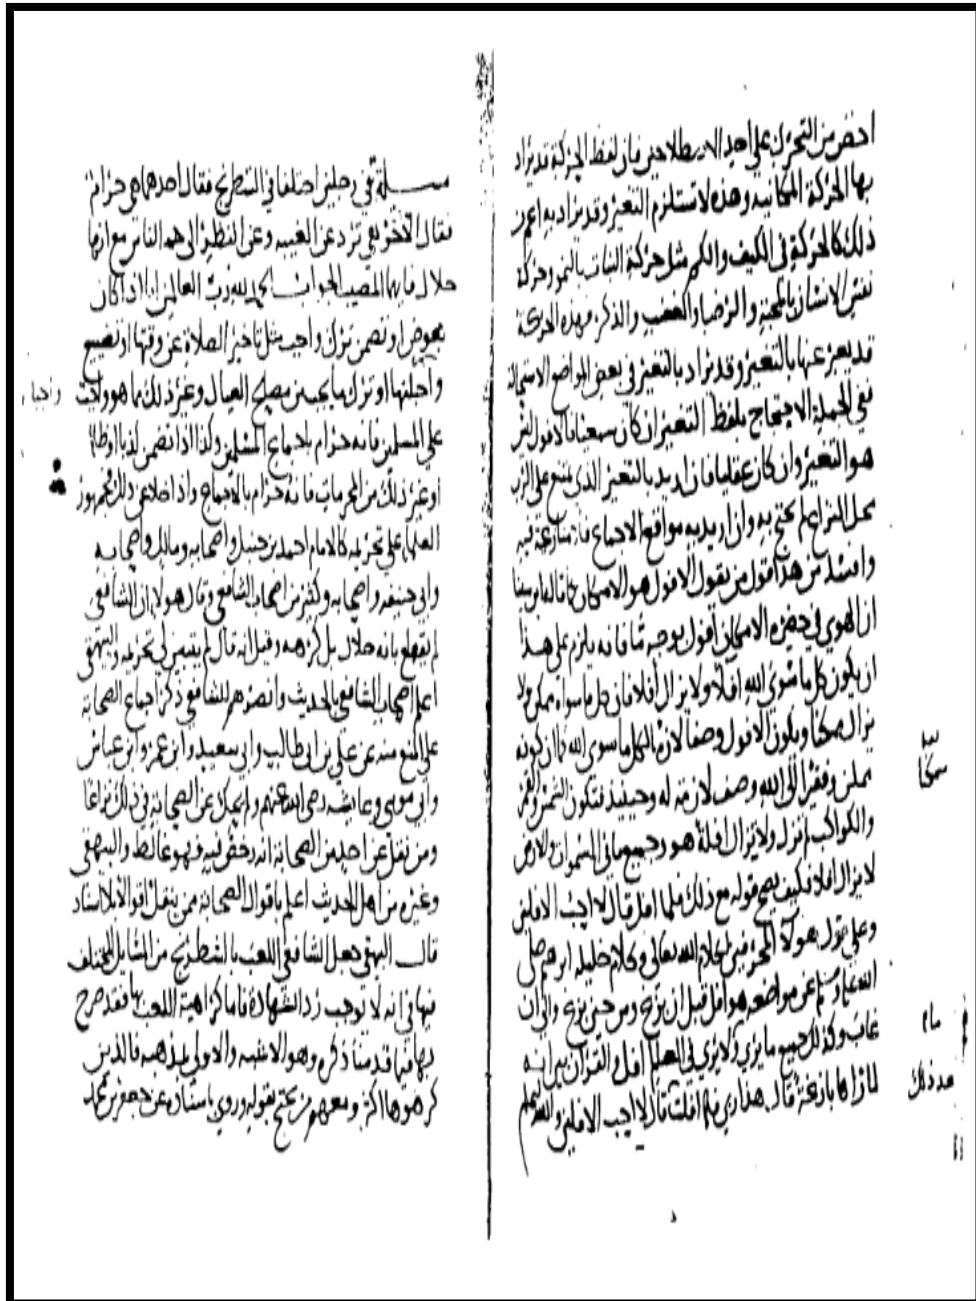 اخص من التحرك على احد الاصطلاحين فان لفظ الحركة قد يراد
بها الحركة المكانيه وهذه لا تستلزم التغير وقد يراد به اعم من
ذلك كالحركة في الكيف والكم مثل حركة النبات بالنمو وحركة
نفس الانسان بالمحبة والرضا والغضب والذكر فهذه الحركة
قد يعبر عنها بالتغير وقد يراد بالتغير في بعض المواضع الاستحالة
ففي الجملة الاحتجاج بلفظ التغير ان كان سمعيا فالافول ليس
هو التغير وان كان عقليا فان اريد بالتغير الذي يمتنع على الرب
محل النزاع لم يحتج به وان اريد به مواقع الاجماع فلا منازعة فيه
وافسد من هذا قول من يقول الافول هو الامكان كما قاله ابن سينا
ان الهوي في حضرة الامكان افول بوجه ما فانه يلزم على هذا
ان يكون كل ما سوى الله افلا ولا يزال افلا فان كل ما سواه ممكن ولا
يزال ممكنا ويكون الافول وصفا لازما لكل ما سوى الله كما ان كونه
ممكن وفقيرا الى الله وصف لازم له وحينئذ فتكون الشمس والقمر
والكواكب لم تزل ولا تزال افلة هو وجميع ما في السموات والارض
لا يزال افلا فكيف يصح قوله مع ذلك فلما افل قال لا احب الافلين
وعلى قول هولا المحرفين لكلام الله تعالى وكلام خليله ابرهيم صلى
الله عليه وسلم عن مواضعه هو افل قبل ان بزغ ومن حين بزغ والى ان
غاب وكذلك جميع ما يرى ولا يرى في العالم افل والقران بين انه
لما راها بازغة قال هذا ربي فلما افلت قال لا احب الافلين والله اعلم
ممكنا
مام
مسلة في رجلين اختلفا في الشطرنج فقال احدهما هي حرام
فقال الاخر هي ترد عن الغيبه وعن النظر الى هم الناس مع انها
حلال فايهما المصيب الجواب الحمد لله رب العالمين اما اذا كان
بعوض او تضمن ترك واجب مثل تاخير الصلاة عن وقتها او تضييع
واجباتها او ترك ما يجب من مصالح العيال وغير ذلك مما هو واجب
واجبا
على المسلمين فانه حرام باجماع المسلمين وكذا اذا تضمن كذبا او ظلما
او غير ذلك من المحرمات فانه حرام بالاجماع واذا خلا عن ذلك فجمهور
العلما على تحريمه كالامام احمد بن حنبل واصحابه ومالك واصحابه
وابي حنيفه واصحابه وكثير من اصحاب الشافعي وقال هولا ان الشافعي
لم يقطع بانه حلال بل كرهه وقيل انه قال لم يتبين لي تحريمه والبيهقي
اعلم اصحاب الشافعي بالحديث وانصرهم للشافعي ذكر اجماع الصحابة
على المنع منه عن علي بن ابي طالب وابي سعيد وابن عمر وابن عباس
وابي موسى وعايشه رضي الله عنهم ولم يحك عن الصحابة في ذلك نزاعا
ومن نقل عن احد من الصحابة انه رخص فيه فهو غالط والبيهقي
وغيره من اهل الحديث اعلم باقوال الصحابة ممن ينقل اقوالا بلا اسناد
قال البيهقي جعل الشافعي اللعب بالشطرنج من المسايل المختلف
فيها في انه لا توجب رد الشهادة فاما كراهية اللعب بها فقد صرح
بها فيما قدمنا ذكره وهو الاشبه والاولى بمذهبه فالذين
كرهوها اكثر ومعهم من يحتج بقوله وروي باسناده عن جعفر بن محمد